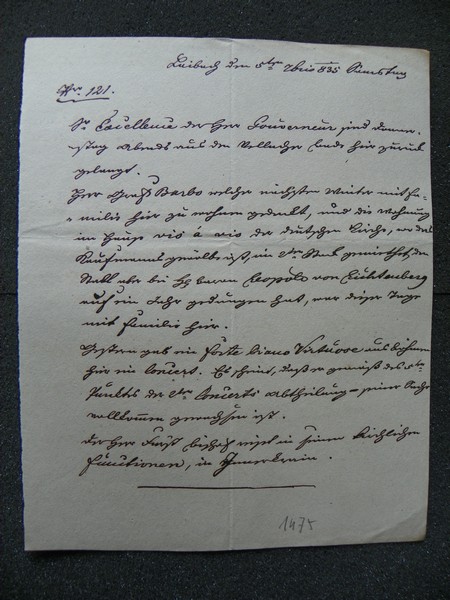 Laibach den 5ten 7bris 835 Samstag
Nr. 121.
Sr. Excellence der Herr Gouverneur sind Donner-
stag Abends aus dem Vellacher Bade hier zurück
gelangt.
Herr Graf Barbo welcher nächsten Winter mit Fa-
milie hier zu wohnen gedenkt, und die Wohnung
im Hause vis à vis der deutschen Kirche, wo das
Kaufmanns gewölb ist, im 2ten Stock gemiethet, den
Stall aber bei H Baron Leopold von Lichtenberg
auf ein Jahr gedungen hat, war dieser Tage
mit Familie hier.
Gestern gab ein forte piano Virtuose aus Böhmen
hier ein Concert. Es scheint, daß er gemäß des 5ten
Punkts der 2ten Concerts Abtheilung – seiner Sache
vollkommen gewachsen ist.
Der Herr Fürst Bischof reiset in seinen kirchlichen
Functionen, in Innerkrain.
1475